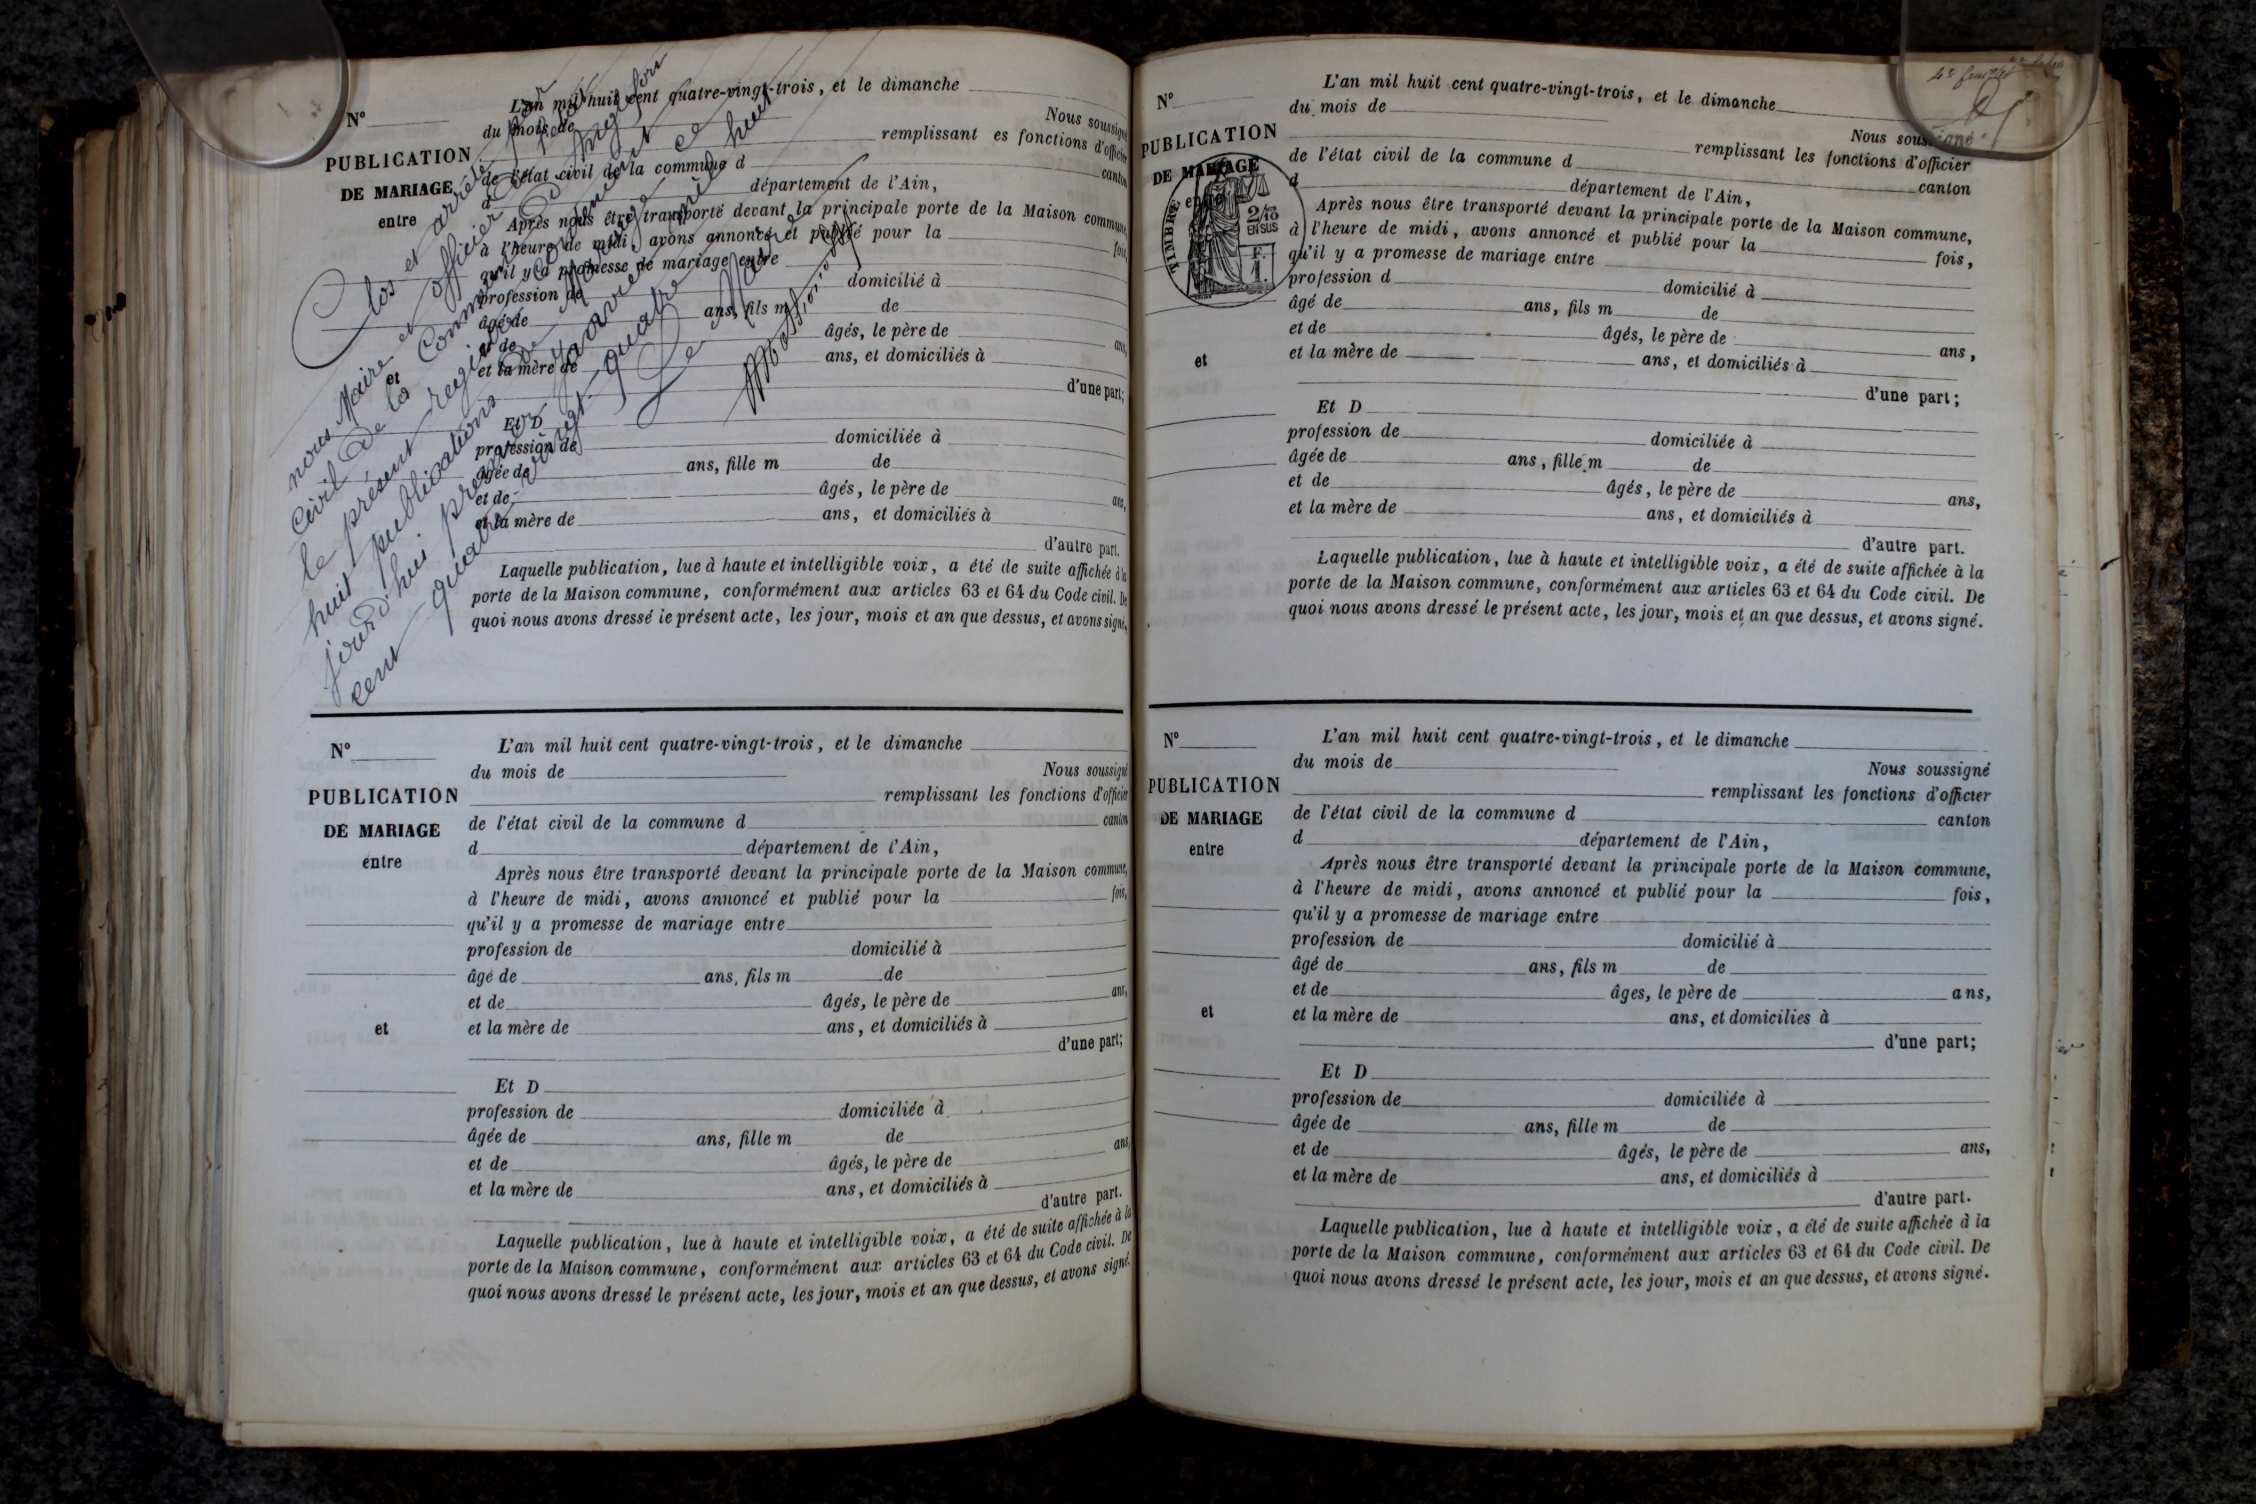 N°
PUBLICATION
DE MARIAGE
entre
et
L'an mil huit cent quatre-vingt-trois, et le dimanche
du mois de
Nous soussigné
remplissant es fonctions d'officier
de l'état civil de la commune d
canton
d
département de l'Ain,
Après nous être transporté devant la principale porte de la Maison commune,
à l'heure de midi, avons annoncé et publié pour la
fois,
qu'il y a promesse de mariage entre
profession de
domicilié à
âgé de
ans, fils m
de
et de
âgés, le père de
ans,
et la mère de
ans, et domiciliés à
d'une part;
Et D
profession de
domiciliée à
âgée de
ans, fille m
de
et de
âgés, le père de
ans,
et la mère de
ans, et domiciliés à
d'autre part.
Laquelle publication, lue à haute et intelligible voix, a été de suite affichée à la
porte de la Maison commune, conformément aux articles 63 et 64 du Code civil. De
quoi nous avons dressé le présent acte, les jour, mois et an que dessus, et avons signé.
Clos et arrêté par
nous Maire et officier de l'état
civil de la Commune
le présent registre contenant
huit publications de Mariage ce
jourd'hui premier janvier mil huit
cent quatre-vingt-quatre
Le Maire
N°
PUBLICATION
DE MARIAGE
entre
et
L'an mil huit cent quatre-vingt-trois, et le dimanche
du mois de
Nous soussigné
remplissant les fonctions d'officier
de l'état civil de la commune d
canton
d
département de l'Ain,
Après nous être transporté devant la principale porte de la Maison commune,
à l'heure de midi, avons annoncé et publié pour la
fois,
qu'il y a promesse de mariage entre
profession de
domicilié à
âgé de
ans, fils m
de
et de
âgés, le père de
ans,
et la mère de
ans, et domiciliés à
d'une part;
Et D
profession de
domiciliée à
âgée de
ans, fille m
de
et de
âgés, le père de
ans,
et la mère de
ans, et domiciliés à
d'autre part.
Laquelle publication, lue à haute et intelligible voix, a été de suite affichée à la
porte de la Maison commune, conformément aux articles 63 et 64 du Code civil. De
quoi nous avons dressé le présent acte, les jour, mois et an que dessus, et avons signé.
N°
PUBLICATION
DE MARIAGE
entre
TIMBRE
2/10
EN SUS
F.
1.
et
L'an mil huit cent quatre-vingt-trois, et le dimanche
du mois de
Nous soussigné
remplissant les fonctions d'officier
de l'état civil de la commune d
canton
d
département de l'Ain,
Après nous être transporté devant la principale porte de la Maison commune,
à l'heure de midi, avons annoncé et publié pour la
fois,
qu'il y a promesse de mariage entre
profession d
domicilié à
âgé de
ans, fils m
de
et de
âgés, le père de
ans,
et la mère de
ans, et domiciliés à
d'une part;
Et D
profession de
domiciliée à
âgée de
ans, fille m
de
et de
âgés, le père de
ans,
et la mère de
ans, et domiciliés à
d'autre part.
Laquelle publication, lue à haute et intelligible voix, a été de suite affichée à la
porte de la Maison commune, conformément aux articles 63 et 64 du Code civil. De
quoi nous avons dressé le présent acte, les jour, mois et an que dessus, et avons signé.
N°
PUBLICATION
DE MARIAGE
entre
et
L'an mil huit cent quatre-vingt-trois, et le dimanche
du mois de
Nous soussigné
remplissant les fonctions d'officier
de l'état civil de la commune d
canton
d
département de l'Ain,
Après nous être transporté devant la principale porte de la Maison commune,
à l'heure de midi, avons annoncé et publié pour la
fois,
qu'il y a promesse de mariage entre
profession de
domicilié à
âgé de
ans, fils m
de
et de
âges, le père de
ans,
et la mère de
ans, et domicilies à
d'une part;
Et D
profession de
domiciliée à
âgée de
ans, fille m
de
et de
âgés, le père de
ans,
et la mère de
ans, et domiciliés à
d'autre part.
Laquelle publication, lue à haute et intelligible voix, a été de suite affichée à la
porte de la Maison commune, conformément aux articles 63 et 64 du Code civil. De
quoi nous avons dressé le présent acte, les jour, mois et an que dessus, et avons signé.